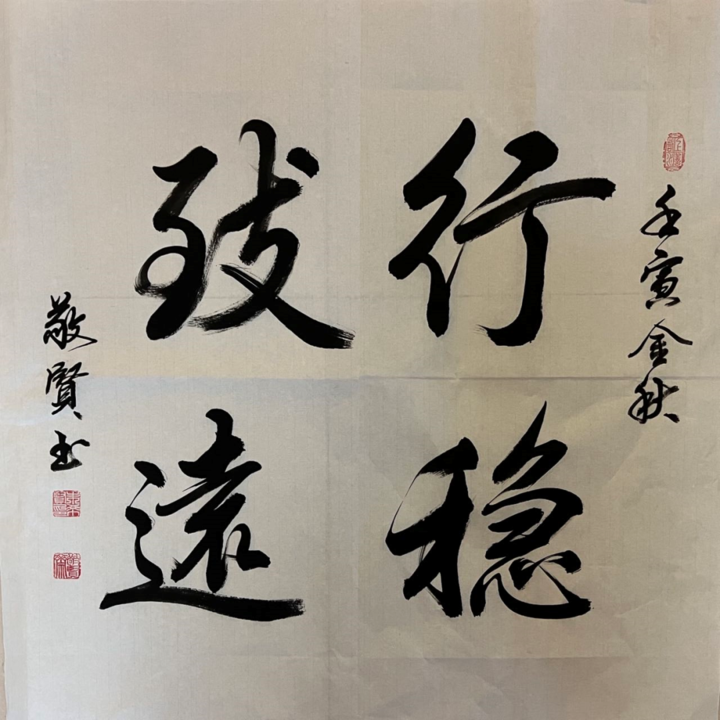 壬寅金秋
行稳
致遠
敬賢书